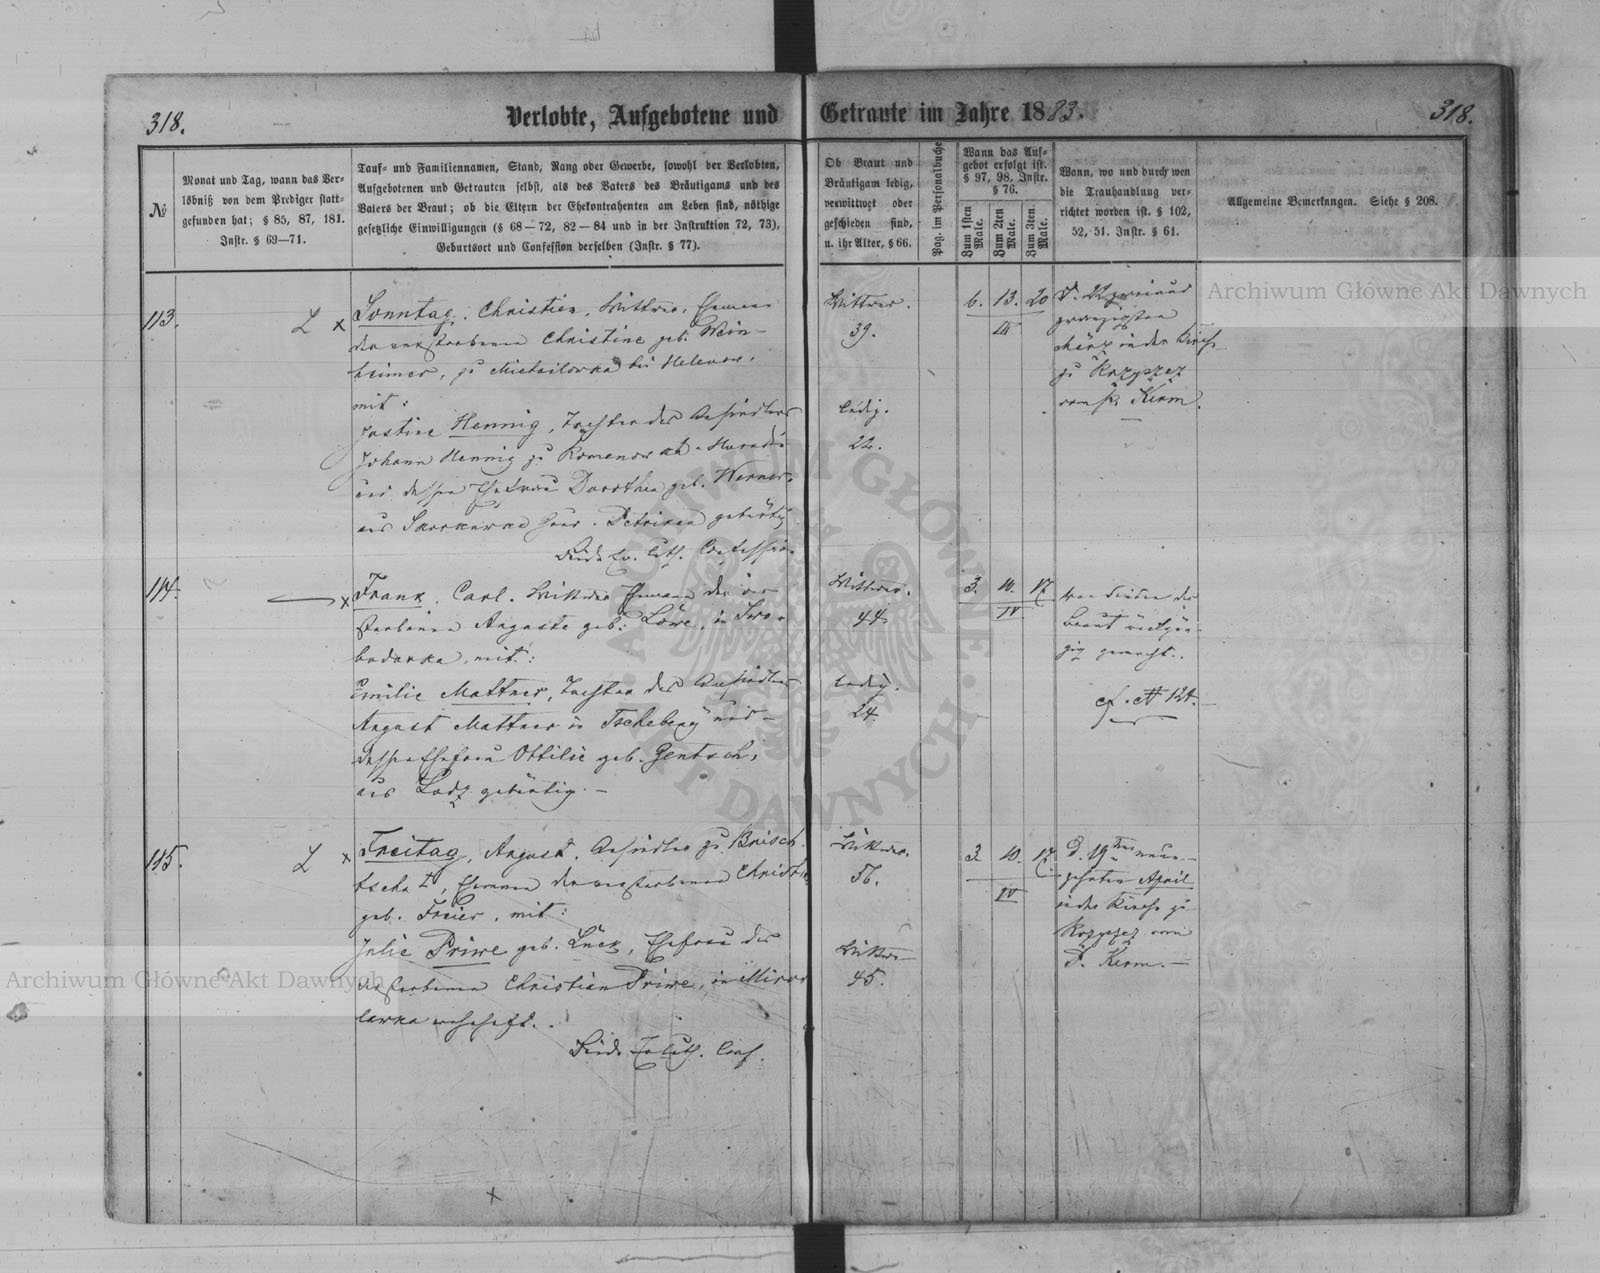 318.
Verlobte, Aufgebotene und Getraute im Jahre 1883.
318.
№
Monat und Tag, wann das Ver-
löbniß von dem Prediger statt-
gefunden hat; § 85, 87, 181.
Instr. § 69—71.
Tauf- und Familiennamen, Stand, Rang oder Gewerbe, sowohl der Verlobten,
Aufgebotenen und Getrauten selbst, als des Vaters des Bräutigams und des
Vaters der Braut; ob die Eltern der Ehekontrahenten am Leben sind, nöthige
gesetzliche Einwilligungen (§ 68—72, 82—84 und in der Instruktion 72, 73),
Geburtsort und Confession derselben (Instr. § 77).
Ob Braut und
Bräutigam ledig,
verwittwet oder
geschieden sind,
u. ihr Alter, § 66.
Pag. im Personalbuche
Wann das Auf-
gebot erfolgt ist.
§ 97, 98, Instr.
§ 76.
Zum 1sten
Male.
Zum 2ten
Male.
Zum 3ten
Male.
Wann, wo und durch wen
die Trauhandlung ver-
richtet worden ist. § 102,
52, 51. Instr. § 61.
Allgemeine Bemerkungen. Siehe § 208.
113.
L x
Sonntag, Christian, Wittwer, Ehemann
der verstorbenen Christine geb. Wein-
heimer, zu Michailowka bei Helenow,
mit:
Justine Hennig, Tochter des Ansiedlers
Johann Hennig zu Romanowka
und dessen Ehefrau Dorothea geb. Werner,
aus Gouv. Petrikau gebürtig
Beide Ev. Luth. Confession.
Wittwer.
39.
ledig.
22.
6. 13. 20
III
März in der Kirche
zu Rozyszcz
vom P. Kerm.
114.
x
Frank, Carl, Wittwer Ehemann der ver-
storbenen Auguste geb. Löwe, in Swo-
bodarka, mit:
Emilie Mattner, Tochter des Ansiedlers
August Mattner in und
dessen Ehefrau Ottilie geb. Gentsch,
aus Lodz gebürtig. —
Wittwer.
44.
ledig.
24.
3. 10. 17.
IV
von Seiten der
Braut rückgän-
gig gemacht.
cf. № 124.
115.
L x
Freitag, August, Ansiedler zu
Ehemann der verstorbenen Christine
geb. Freier, mit:
Julie Priwe geb. Lück, Ehefrau des
verstorbenen Christian Priwe, in
lawka wohnhaft.
Beide Ev. Luth. Conf.
Wittwer.
56.
Wittwe
45.
3. 10. 17.
IV
D. 19ten neun-
zehnten April
in der Kirche zu
Rozyszcz vom
P. Kerm. —
x
Archiwum Główne Akt Dawnych
Archiwum Główne Akt Dawnych
ARCHIWUM GŁÓWNE AKT DAWNYCH